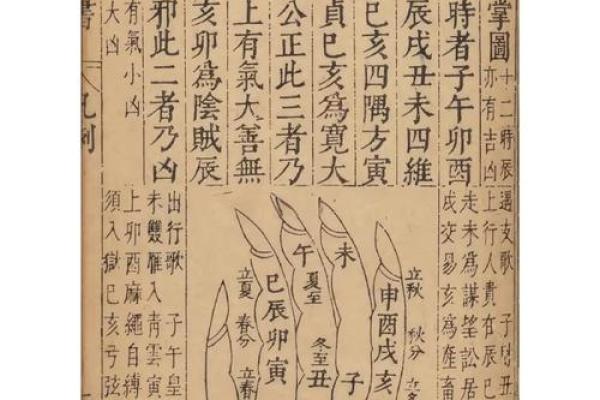 掌圖
十二時辰
亦有吉凶
時者子午卯酉
辰戌丑未四維
巳亥四隅方寅
貞巳亥爲寬大
公正此三者乃
上有氣大善無
亥卯爲陰賊辰
邪此二者乃凶
有氣小凶
大凶
遇支歌 子 丑
上行人貴在辰巳
走未爲謀望訟居
戌交易亥爲產畜
立秋 秋分 立
申酉戌亥
未 子
午 夏至 冬至 丑
巳辰卯寅
立夏 春分 立春
出行歌 子午皇
未雙雁入青雲寅
上卯酉麻繩自縛
須入獄巳亥弓弦
書
凡例